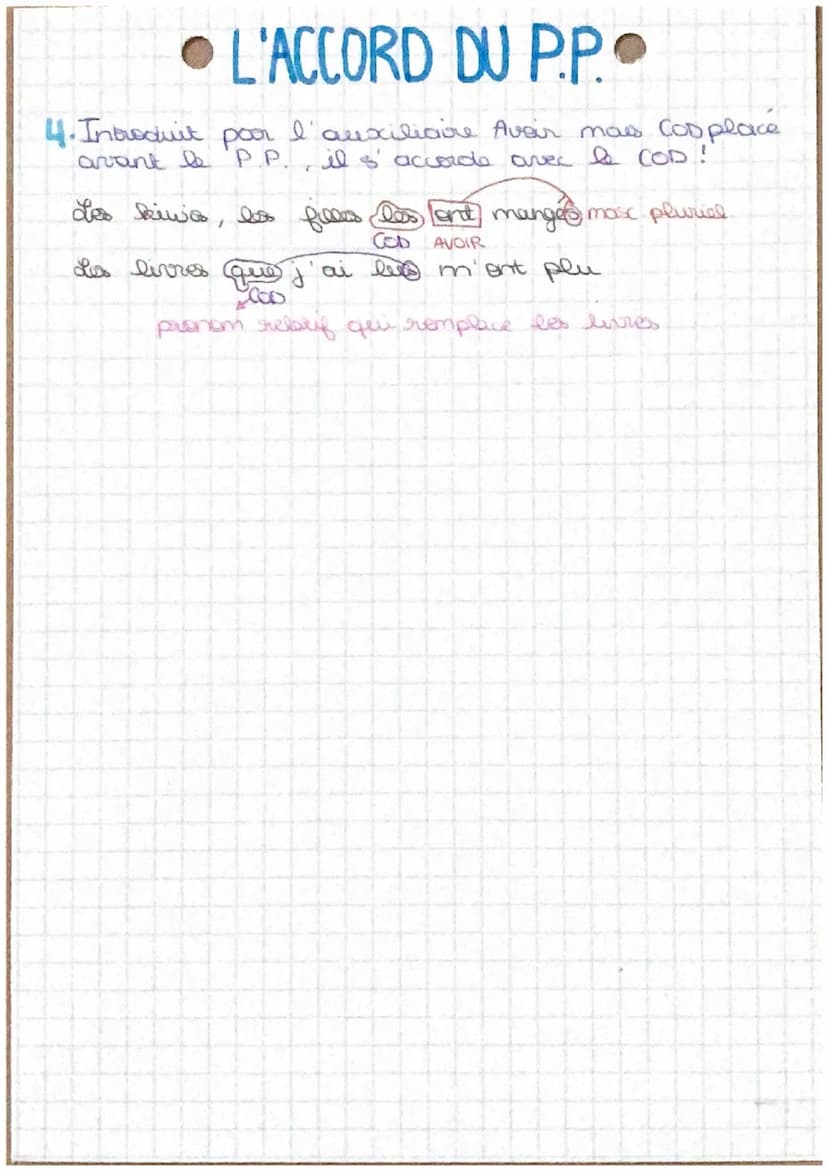 L'ACCORD DU P.P.
4. Introduit par l'auxiliaire Avoir mais COD placé
avant le P.P., il s'accorde avec le COD !
Les kiwis, les filles les ont mangés masc pluriel
COD AVOIR
Les livres que j'ai lus m'ont plu
COD
pronom relatif qui remplace les livres